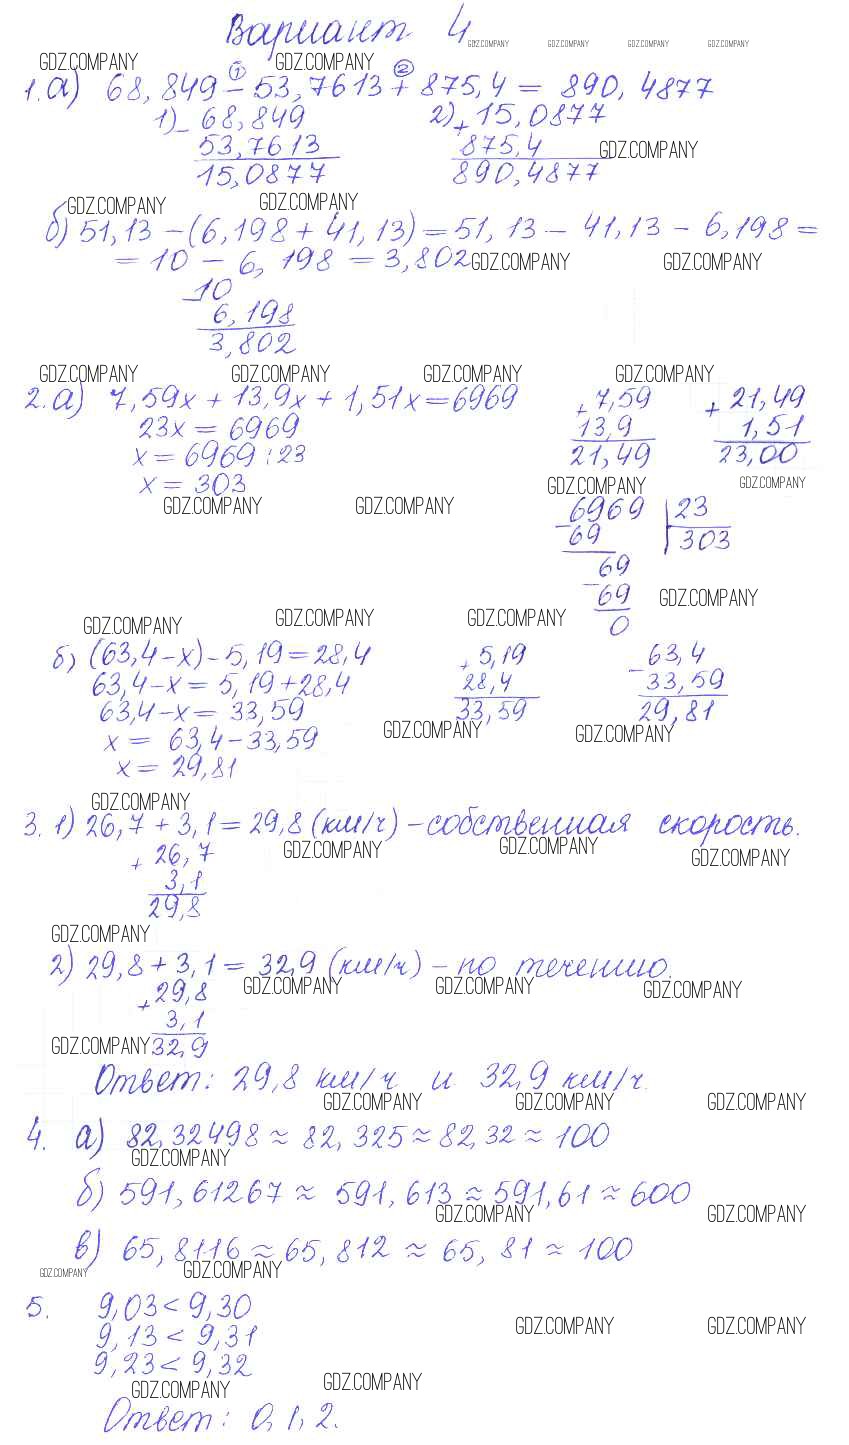 Вариант 4
GDZ.COMPANY GDZ.COMPANY GDZ.COMPANY GDZ.COMPANY
GDZ.COMPANY GDZ.COMPANY
① ②
1. а) 68,849 – 53,7613 + 875,4 = 890,4877
1) – 68,849 2) + 15,0877
53,7613 875,4 GDZ.COMPANY
15,0877 890,4877
GDZ.COMPANY GDZ.COMPANY
б) 51,13 – (6,198 + 41,13) = 51,13 – 41,13 – 6,198 =
= 10 – 6,198 = 3,802 GDZ.COMPANY GDZ.COMPANY
– 10
6,198
3,802
GDZ.COMPANY GDZ.COMPANY GDZ.COMPANY GDZ.COMPANY
2. а) 7,59х + 13,9х + 1,51х = 6969 + 7,59 + 21,49
23х = 6969 13,9 1,51
х = 6969 : 23 21,49 23,00
х = 303 GDZ.COMPANY GDZ.COMPANY
GDZ.COMPANY GDZ.COMPANY – 6969 23
69 303
69
– 69 GDZ.COMPANY
0
GDZ.COMPANY GDZ.COMPANY GDZ.COMPANY
б) (63,4 – х) – 5,19 = 28,4 + 5,19 – 63,4
63,4 – х = 5,19 + 28,4 28,4 33,59
63,4 – х = 33,59 33,59 29,81
GDZ.COMPANY GDZ.COMPANY
х = 63,4 – 33,59
х = 29,81
GDZ.COMPANY
3. 1) 26,7 + 3,1 = 29,8 (км/ч) – собственная скорость.
+ 26,7 GDZ.COMPANY GDZ.COMPANY GDZ.COMPANY
3,1
29,8
GDZ.COMPANY
2) 29,8 + 3,1 = 32,9 (км/ч) – по течению.
+ 29,8 GDZ.COMPANY GDZ.COMPANY GDZ.COMPANY
3,1
GDZ.COMPANY 32,9
Ответ: 29,8 км/ч и 32,9 км/ч.
GDZ.COMPANY GDZ.COMPANY GDZ.COMPANY
4. а) 82,32498 ≈ 82,325 ≈ 82,32 ≈ 100
GDZ.COMPANY
б) 591,61267 ≈ 591,613 ≈ 591,61 ≈ 600
GDZ.COMPANY GDZ.COMPANY
в) 65,8116 ≈ 65,812 ≈ 65,81 ≈ 100
GDZ.COMPANY GDZ.COMPANY
5. 9,03 < 9,30
GDZ.COMPANY GDZ.COMPANY
9,13 < 9,31
9,23 < 9,32
GDZ.COMPANY GDZ.COMPANY
Ответ: 0, 1, 2.